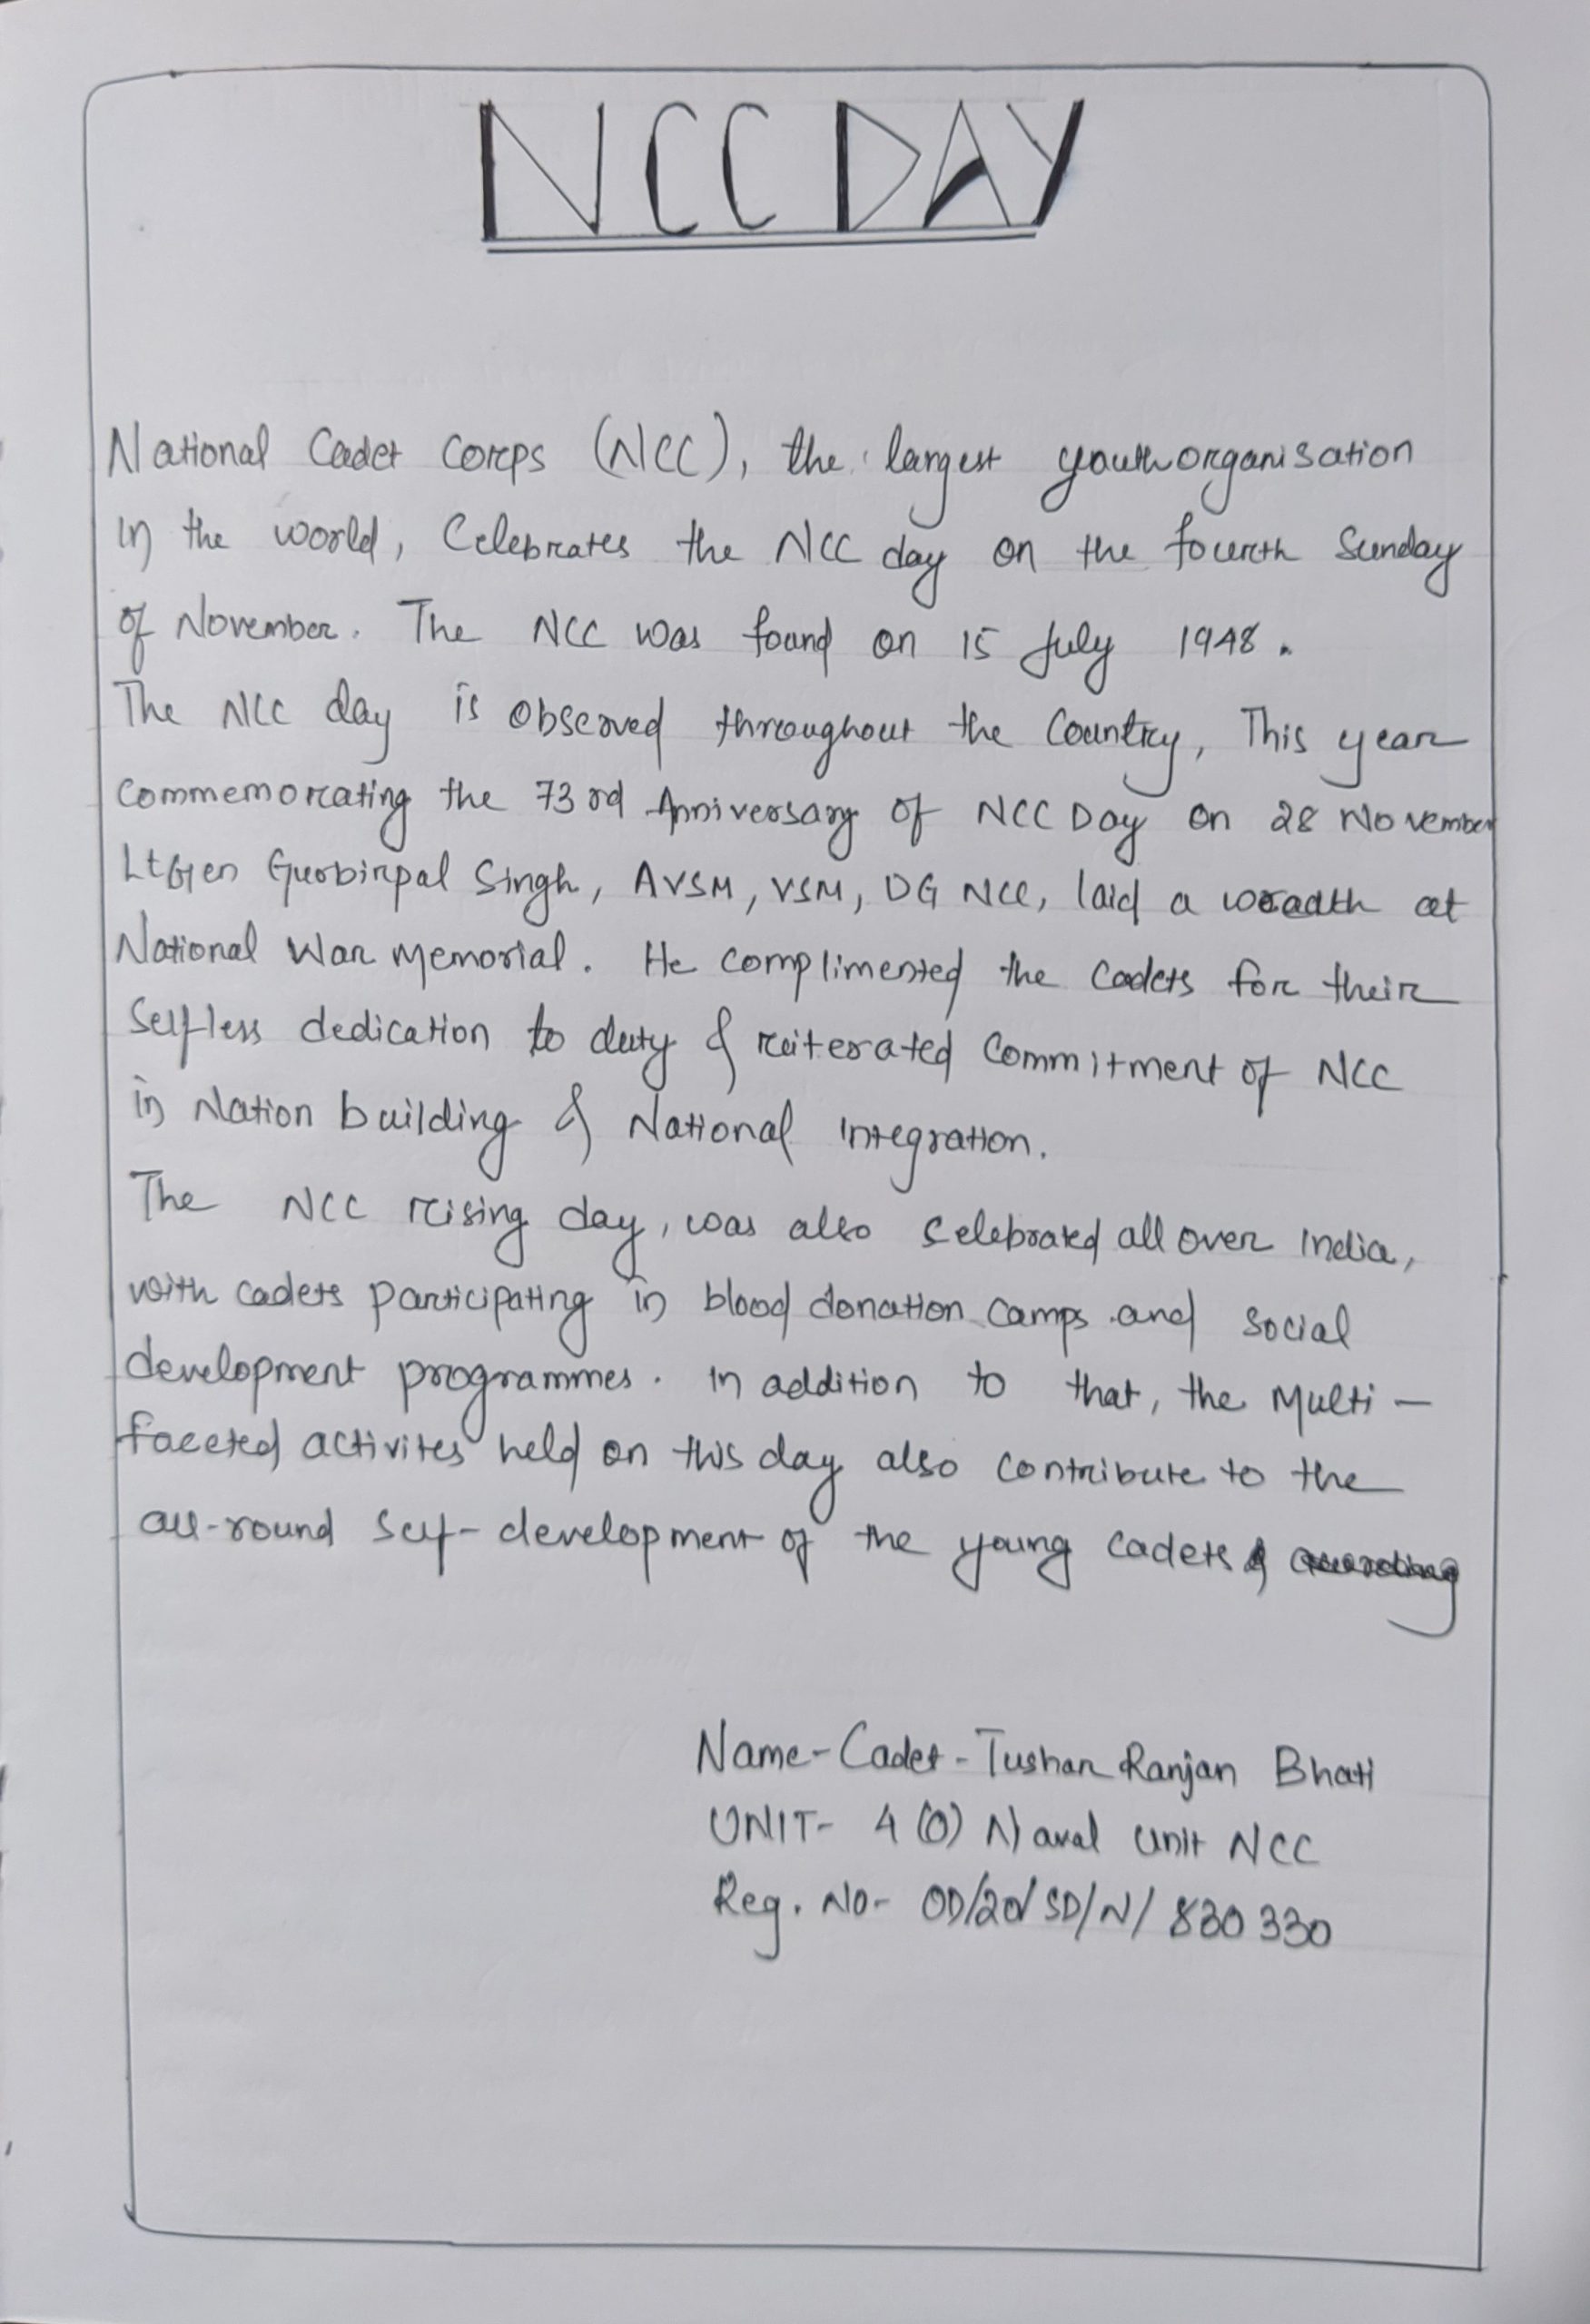 NCC DAY
National Cadet Corps (NCC), the largest youth organisation
in the world, Celebrates the NCC day on the fourth Sunday
of November. The NCC was found on 15 July 1948.
The NCC day is observed throughout the Country, This year
commemorating the 73rd Anniversary of NCC Day on 28 November
Lt Gen Gurbirpal Singh, AVSM, VSM, DG NCC, laid a wreadth at
National War Memorial. He complimented the Cadets for their
Selfless dedication to duty & reiterated Commitment of NCC
in Nation building & National Integration.
The NCC rising day, was also Celebrated all over India,
with cadets participating in blood donation camps and social
development programmes. In addition to that, the Multi-
faceted activites held on this day also contribute to the
all-round self-development of the young cadets
Name-Cadet-Tushar Ranjan Bhati
UNIT- 4 (O) Naval Unit NCC
Reg. No- OD/20/SD/N/830330